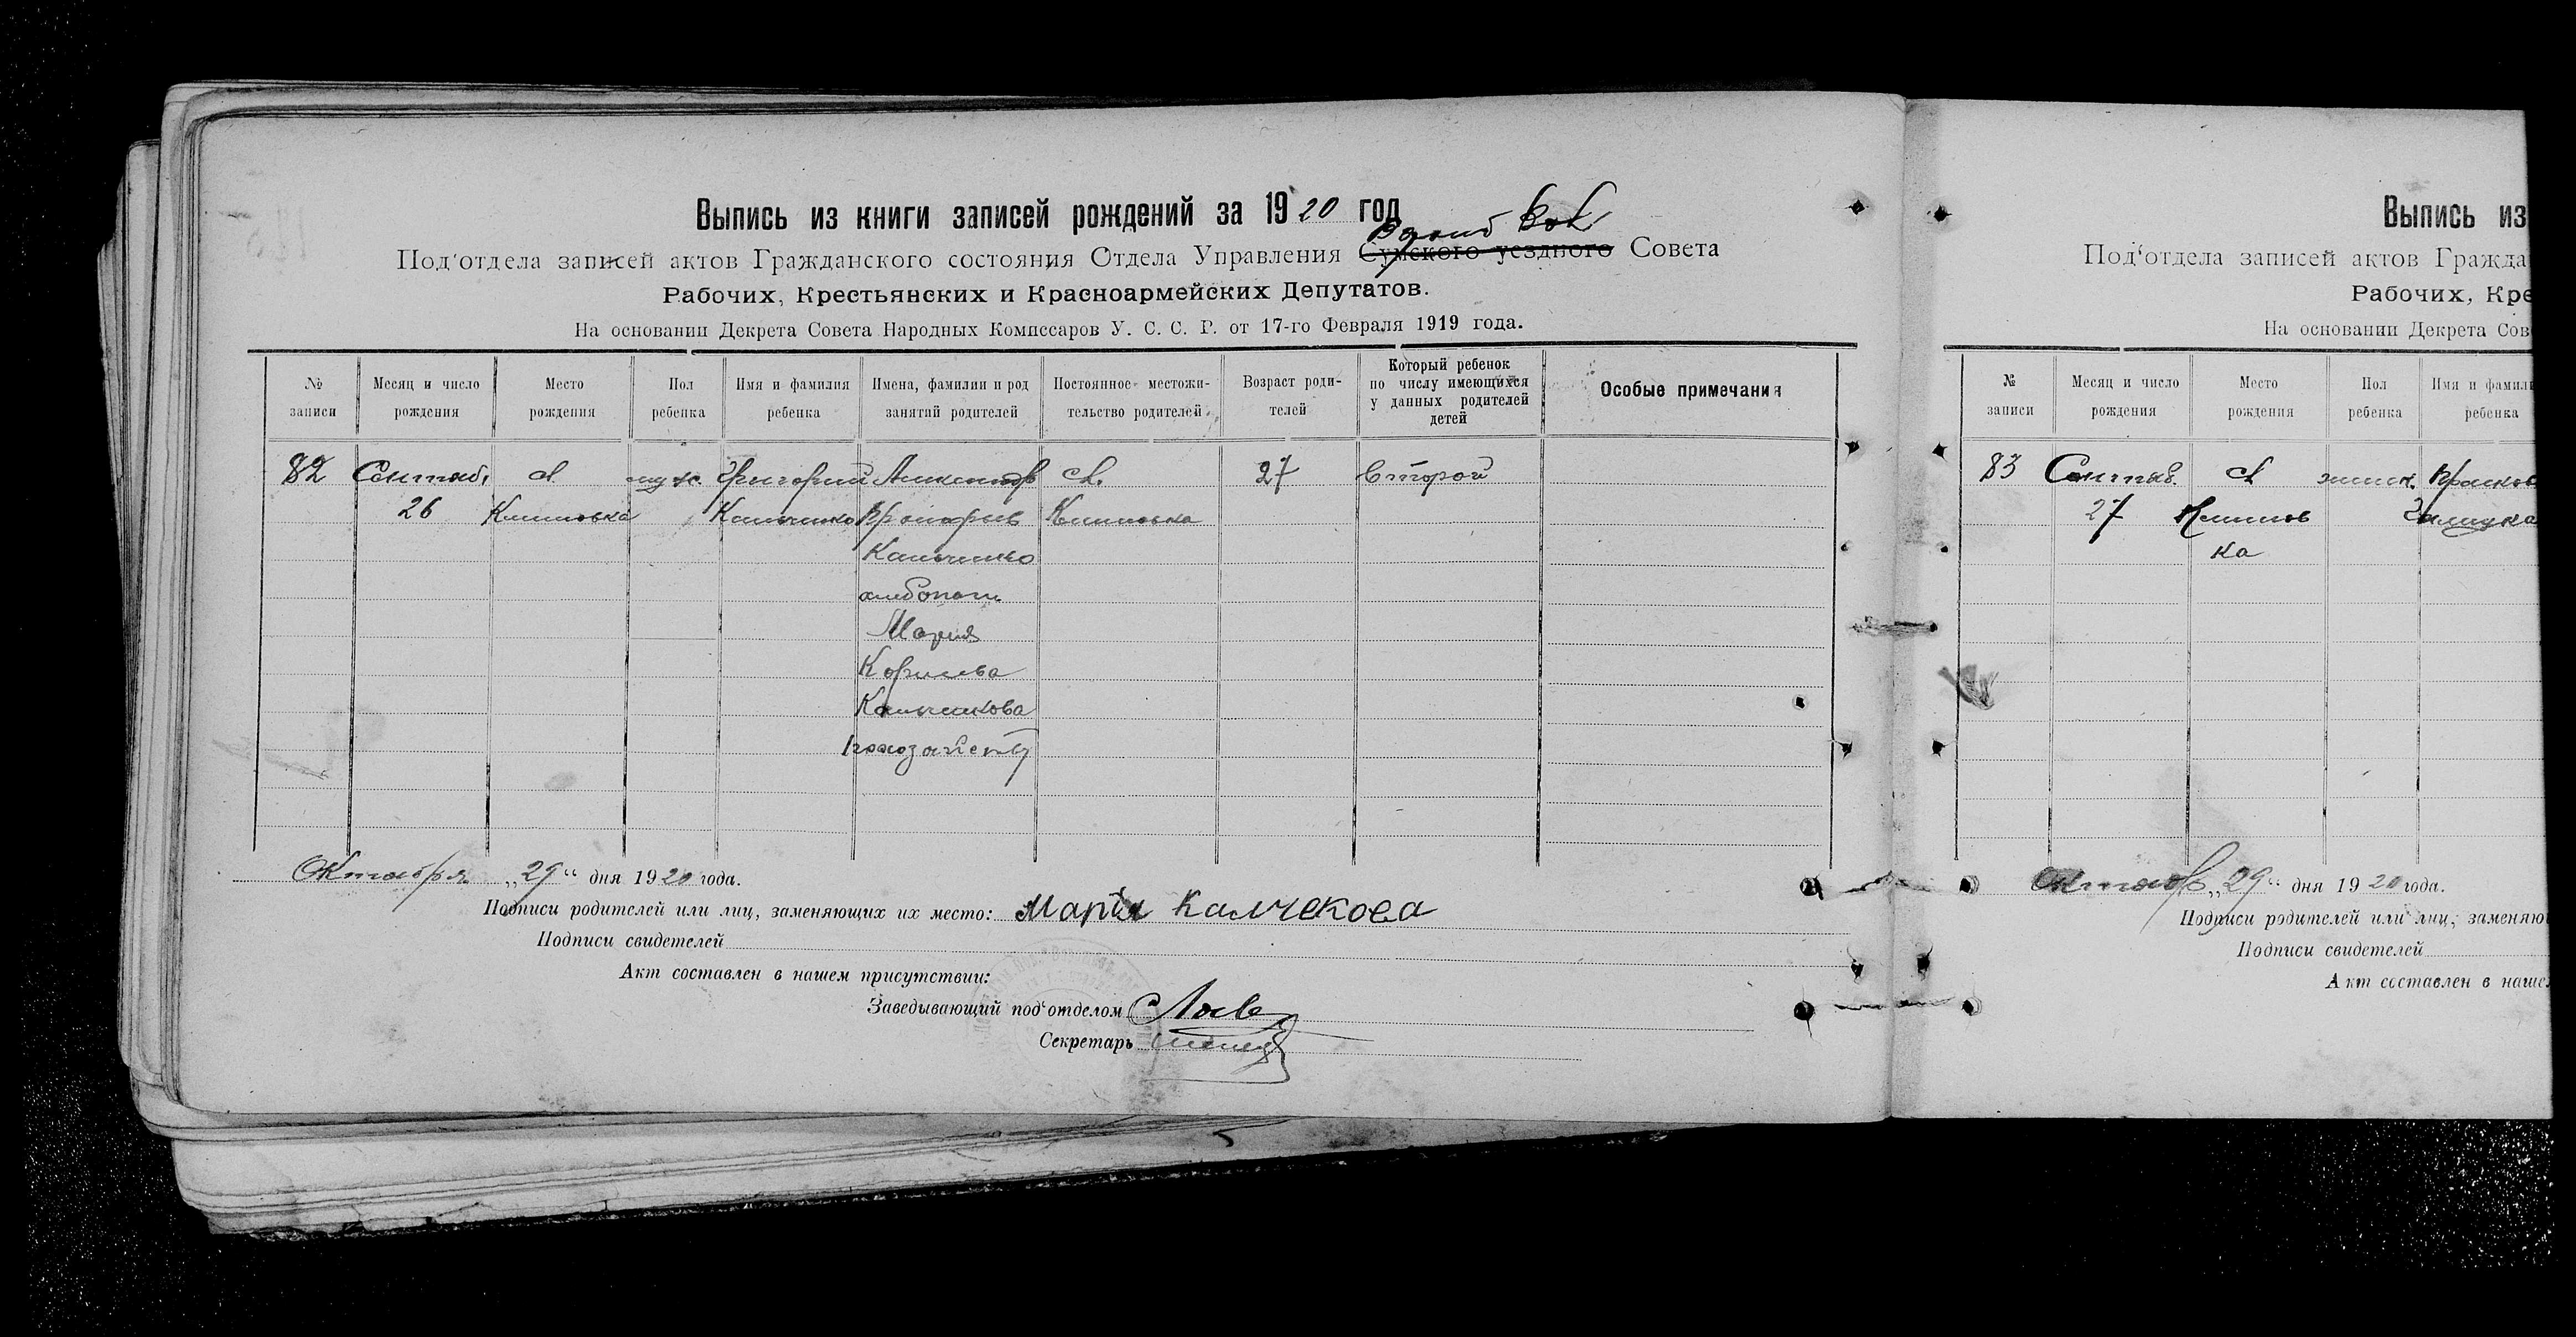 Выпись из книги записей рождений за 1920 год
Под‘отдела записей актов Гражданского состояния Отдела Управления Сумского уездного Совета
Рабочих, Крестьянских и Красноармейских Депутатов.
На основании Декрета Совета Народных Комиссаров У. С. С. Р. от 17-го Февраля 1919 года.
№ записи
Месяц и число рождения
Место рождения
Пол ребенка
Имя и фамилия ребенка
Имена, фамилии и род занятий родителей
Постоянное местожительство родителей
Возраст родителей
Который ребенок по числу имеющихся у данных родителей детей
Особые примечания
82 Сентяб. с. муж. Григорий с. 27 Второй
26 Климовка Кальченко Климовка
Кальченко
хлебопаш.
Мария
Калченкова
Октября „29“ дня 1920 года.
Подписи родителей или лиц, заменяющих их место: Марія Калчекова
Подписи свидетелей
Акт составлен в нашем присутствии:
Заведывающий под‘отделом
Секретарь
Выпись из
Под‘отдела записей актов Гражда
Рабочих, Кре
На основании Декрета Сов
№ записи
Месяц и число рождения
Место рождения
Пол ребенка
Имя и фамили ребенка
83 Сентяб. с.
27 Климов
ка
„29“ дня 1920 года.
Подписи родителей или лиц, заменяю
Подписи свидетелей
Акт составлен в наше